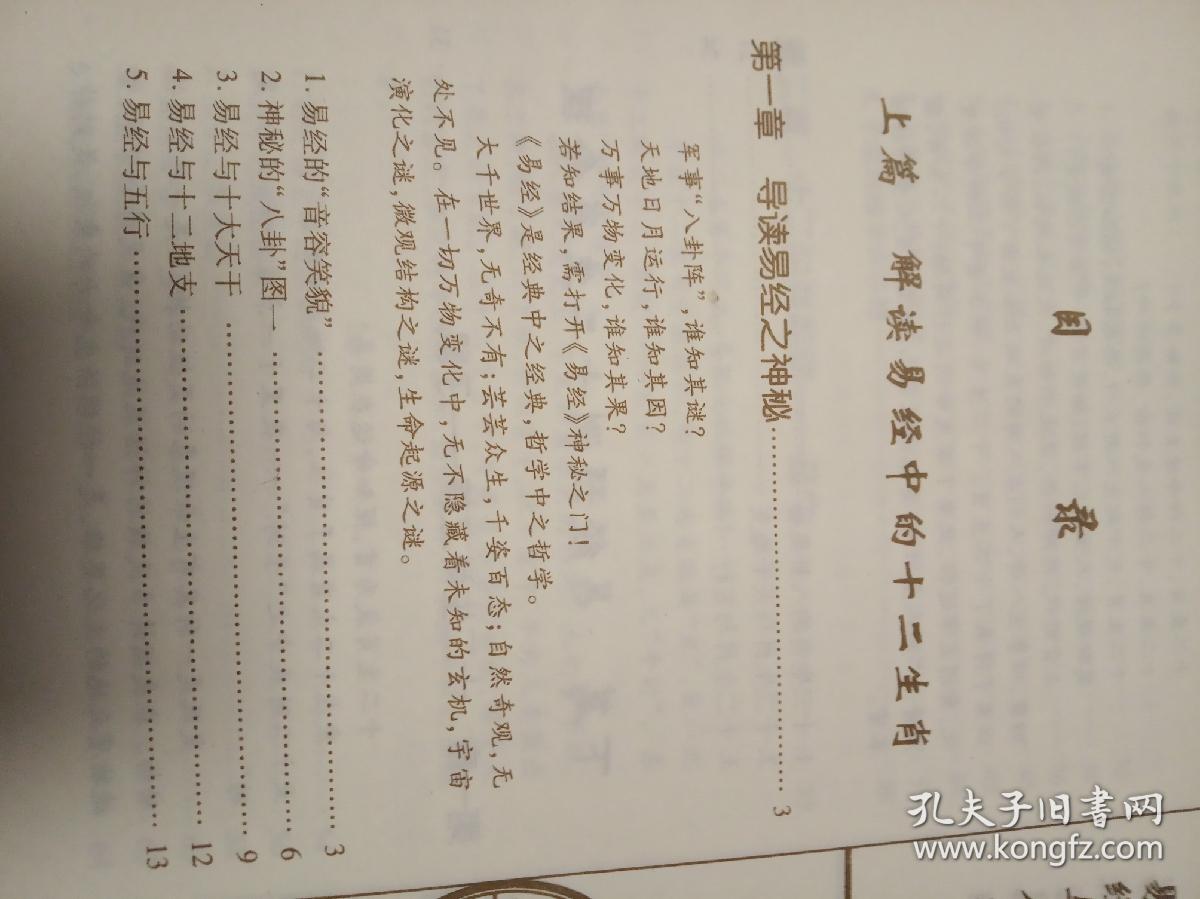 目 录
上篇 解读易经中的十二生肖
第一章 导读易经之神秘……………………3
军事“八卦阵”，谁知其谜？
天地日月运行，谁知其因？
万事万物变化，谁知其果？
若知结果，需打开《易经》神秘之门！
《易经》是经典中之经典，哲学中之哲学。
大千世界，无奇不有；芸芸众生，千姿百态；自然奇观，无
处不见。在一切万物变化中，无不隐藏着未知的玄机，宇宙
演化之谜，微观结构之谜，生命起源之谜。
1. 易经的“音容笑貌”……………………3
2. 神秘的“八卦”图……………………6
3. 易经与十大天干……………………9
4. 易经与十二地支……………………12
5. 易经与五行……………………13
孔夫子旧书网
www.kongfz.com